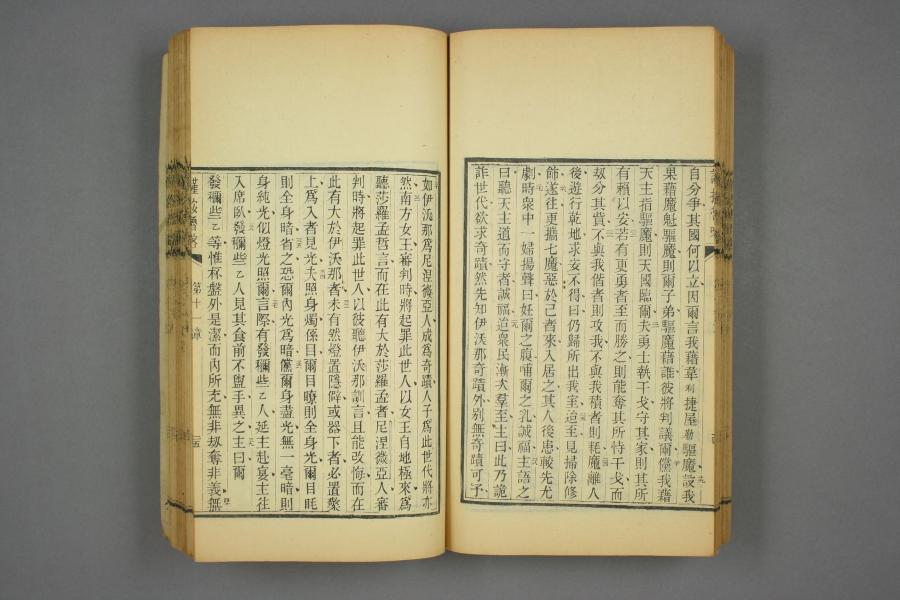 自分爭其國何以立因爾言我藉葦利捷屋勒驅魔設我
藉魔魁驅魔則爾子弟驅魔藉誰彼將判議爾儻我藉
天主指驅魔則天國臨爾夫勇士執干戈守其家則其所
有賴以安若有更勇者至而勝之則能奪其所恃干戈而
刼分其貲不與我偕者則攻我不與我積者則耗魔離人
後遊行乾地求安不得曰仍歸所出我室迨至見掃除修
飾遂往更攜七魔惡於己者來入居之其人後患較先尤
劇時衆中一婦揚聲曰妊爾之腹哺爾之乳誠福主語之
曰聽天主道而守者誠福迨衆民漸大羣至主曰此乃詭
詐世代欲求奇蹟然先知伊沃那奇蹟外別無奇蹟可予
如伊沃那爲尼湼微亞人成爲奇蹟人子爲此世代將亦
然南方女王審判時將起罪此世人以女王自地極來爲
聽莎羅孟哲言而在此有大於莎羅孟者尼湼微亞人審
判時將起罪此世人以彼聽伊沃那訓言且能改悔而在
此有大於伊沃那者未有然燈置隱僻或器下者必置檠
上爲入者見光夫照身燭係目爾目瞭則全身光爾目眊
則全身暗省之恐爾內光爲暗儻爾身盡光無一毫暗則
身純光似燈光照爾言際有發穪些乙人延主赴宴主往
入席臥發穪些乙人見其食前不盥手異之主曰爾
發穪些乙等惟杯盤外是潔而內所充無非刼奪非義無
第十一章